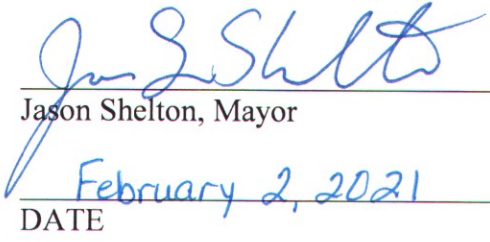 Jason Shelton
Jason Shelton, Mayor
February 2, 2021
DATE